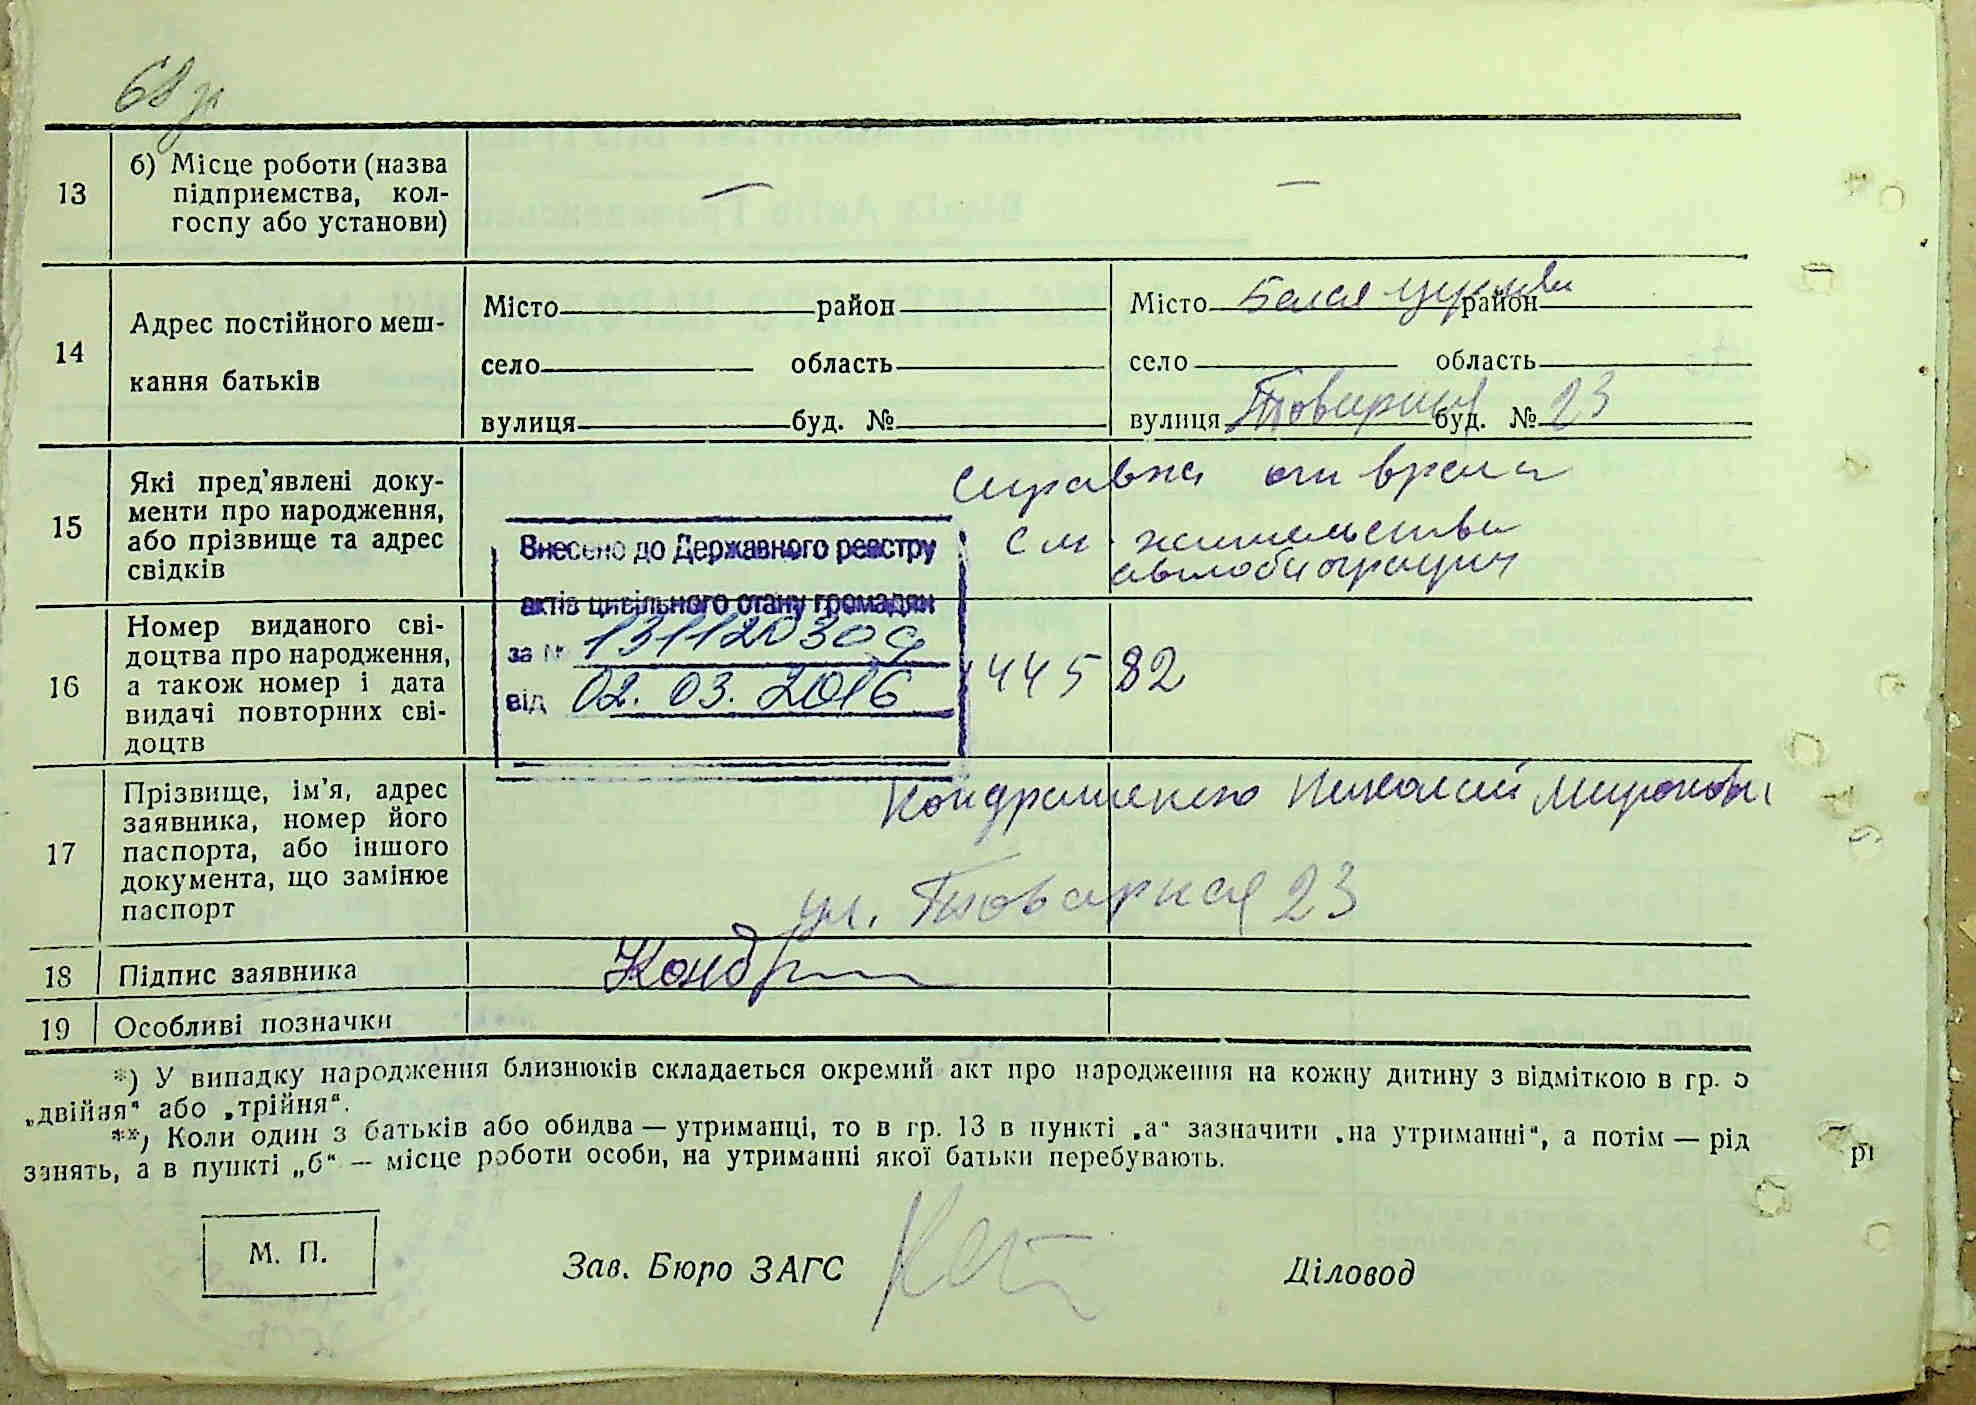 68
13
б) Місце роботи (назва
підприємства, кол-
госпу або установи)
—
—
14
Адрес постійного меш-
кання батьків
Місто район
село область
вулиця буд. №
Місто Белая церковь район
село область
вулиця Товарная буд. № 23
15
Які пред'явлені доку-
менти про народження,
або прізвище та адрес
свідків
справка от врача
с м. жительства
автобиография
Внесено до Державного реєстру
актів цивільного стану громадян
за №
від 02.03.2016
16
Номер виданого сві-
доцтва про народження,
а також номер і дата
видачі повторних сві-
доцтв
44582
17
Прізвище, ім'я, адрес
заявника, номер його
паспорта, або іншого
документа, що замінює
паспорт
Кондрашенко Николай Миронови
ул. Товарная 23
18
Підпис заявника
Кондр
19
Особливі позначки
*) У випадку народження близнюків складається окремий акт про народження на кожну дитину з відміткою в гр. 5
„двійня“ або „трійня“.
**) Коли один з батьків або обидва — утриманці, то в гр. 13 в пункті „а“ зазначити „на утриманні“, а потім — рід
занять, а в пункті „б“ — місце роботи особи, на утриманні якої батьки перебувають.
рі
М. П.
Зав. Бюро ЗАГС
Діловод